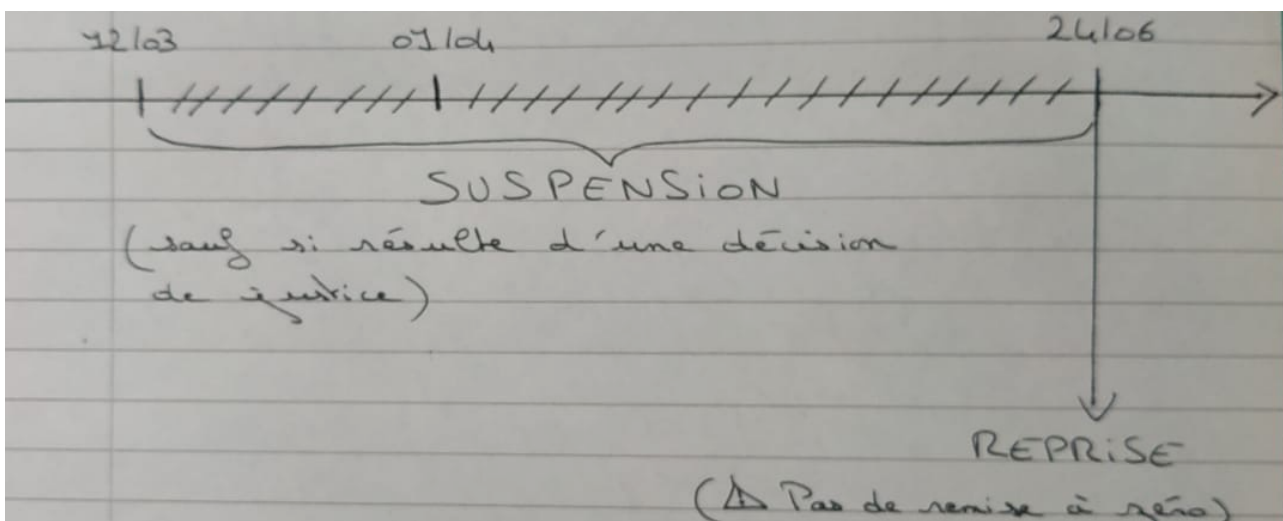 12/03 01/04 24/06
SUSPENSION
(sauf si résulte d'une décision
de justice)
REPRISE
(⚠ Pas de remise à zéro)